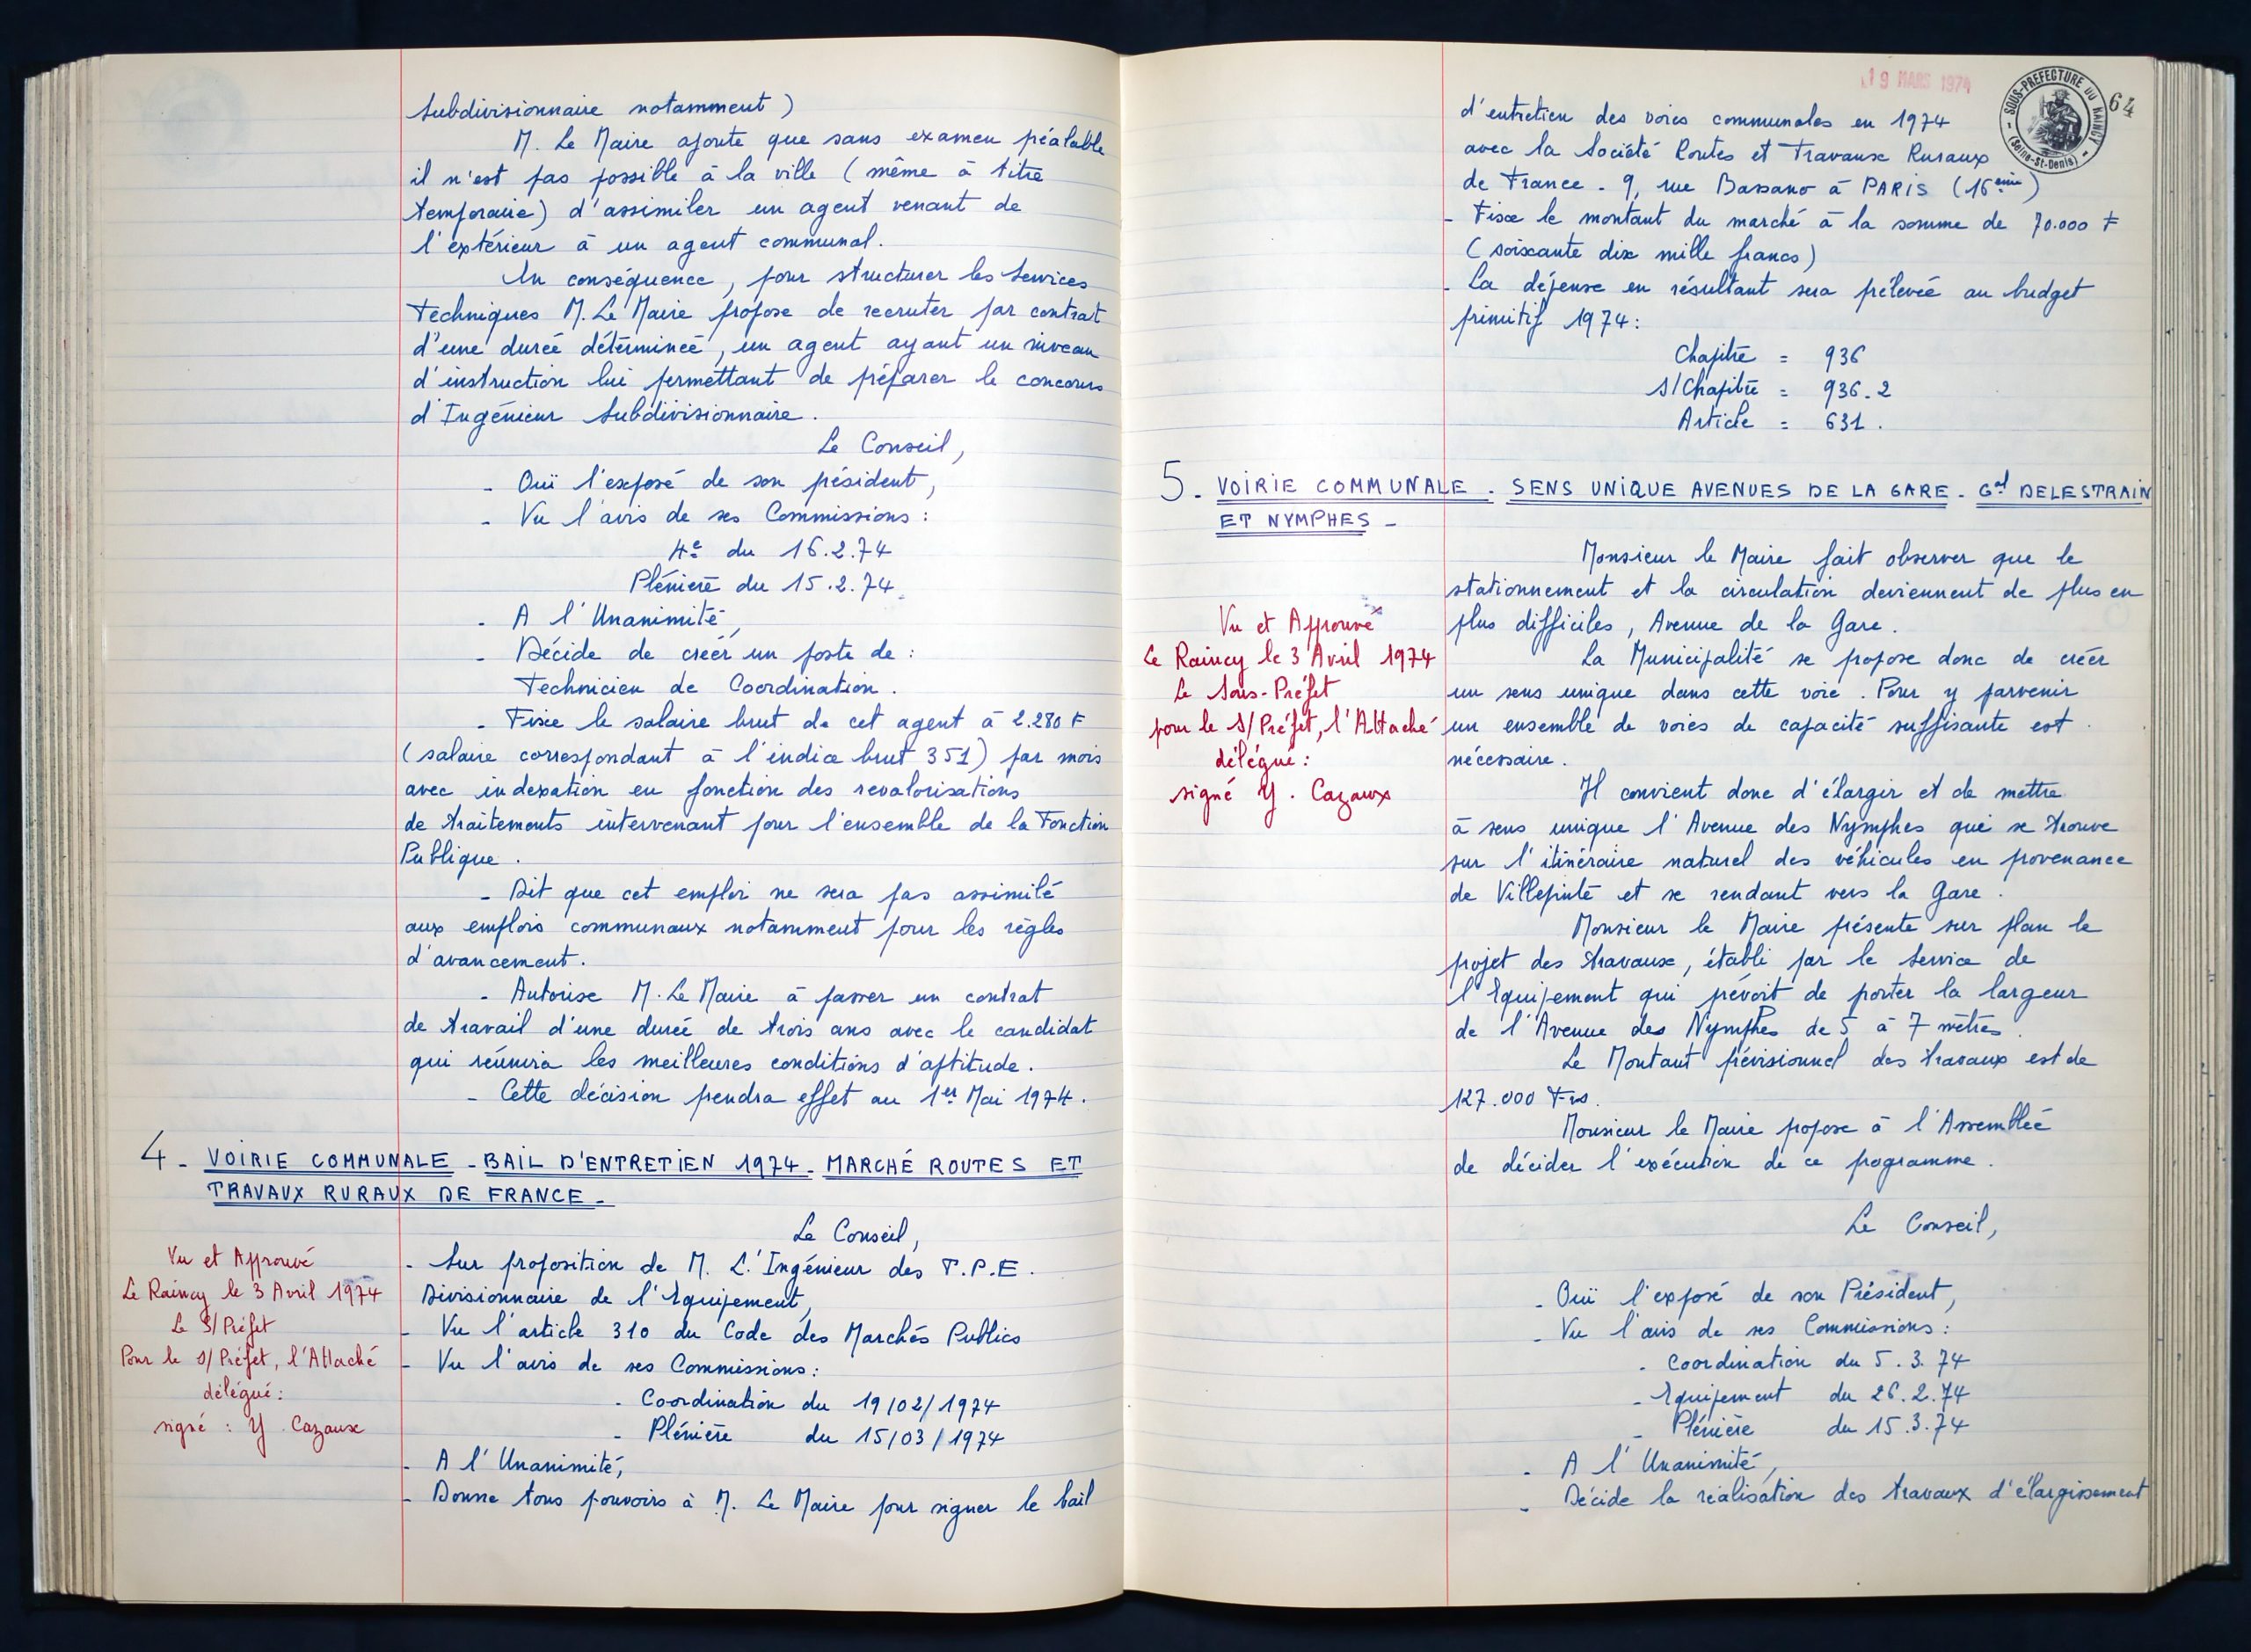 Subdivisionnaire notamment)
M. Le Maire ajoute que sans examen péalable
il n'est pas possible à la ville (même à titre
temporaire) d'assimiler un agent venant de
l'extérieur à un agent communal.
En conséquence, pour structurer les Services
Techniques M. Le Maire propose de recruter par contrat
d'une durée déterminée, un agent ayant un niveau
d'instruction lui permettant de préparer le concours
d'Ingénieur Subdivisionnaire.
Le Conseil,
- Ouï l'exposé de son président,
- Vu l'avis de ses Commissions :
4e du 16.2.74
Plénière du 15.2.74
- A l'Unanimité,
- Décide de créer un poste de :
Technicien de Coordination.
- Fixe le salaire brut de cet agent à 2.280 F
(salaire correspondant à l'indice brut 351) par mois
avec indexation en fonction des revalorisations
de traitements intervenant pour l'ensemble de la Fonction
Publique.
- Dit que cet emploi ne sera pas assimilé
aux emplois communaux notamment pour les règles
d'avancement.
- Autorise M. Le Maire à passer un contrat
de travail d'une durée de trois ans avec le candidat
qui réunira les meilleures conditions d'aptitude.
- Cette décision prendra effet au 1er Mai 1974.
4 - VOIRIE COMMUNALE - BAIL D'ENTRETIEN 1974 - MARCHÉ ROUTES ET
TRAVAUX RURAUX DE FRANCE -
Le Conseil,
- Sur proposition de M. L'Ingénieur des T.P.E.
Divisionnaire de l'Equipement,
- Vu l'article 310 du Code des Marchés Publics
- Vu l'avis de ses Commissions :
- Coordination du 19/02/1974
- Plénière du 15/03/1974
- A l'Unanimité,
- Donne tous pouvoirs à M. Le Maire pour signer le bail
Vu et Approuvé
Le Raincy le 3 Avril 1974
Le S/Préfet
Pour le S/Préfet, l'Attaché
délégué :
signé : Y. Cazaux
19 MARS 1974
SOUS-PREFECTURE DU RAINCY
(Seine-St-Denis)
64
d'entretien des voies communales en 1974
avec la Société Routes et Travaux Ruraux
de France - 9, rue Bassano à PARIS (16ème)
- Fixe le montant du marché à la somme de 70.000 F
(soixante dix mille francs)
- La dépense en résultant sera prélevée au budget
primitif 1974 :
Chapitre = 936
S/Chapitre = 936.2
Article = 631.
5 - VOIRIE COMMUNALE - SENS UNIQUE AVENUES DE LA GARE - Gal DELESTRAIN
ET NYMPHES -
Monsieur le Maire fait observer que le
stationnement et la circulation deviennent de plus en
plus difficiles, Avenue de la Gare.
La Municipalité se propose donc de créer
un sens unique dans cette voie. Pour y parvenir
un ensemble de voies de capacité suffisante est
nécessaire.
Il convient donc d'élargir et de mettre
à sens unique l'Avenue des Nymphes qui se trouve
sur l'itinéraire naturel des véhicules en provenance
de Villepinte et se rendant vers la Gare.
Monsieur le Maire présente sur plan le
projet des travaux, établi par le Service de
l'Equipement qui prévoit de porter la largeur
de l'Avenue des Nymphes de 5 à 7 mètres.
Le Montant prévisionnel des travaux est de
127.000 Frs.
Monsieur le Maire propose à l'Assemblée
de décider l'exécution de ce programme.
Le Conseil,
- Ouï l'exposé de son Président,
- Vu l'avis de ses Commissions :
- Coordination du 5.3.74
- Equipement du 26.2.74
- Plénière du 15.3.74
- A l'Unanimité,
- Décide la réalisation des travaux d'élargissement
Vu et Approuvé
Le Raincy le 3 Avril 1974
Le Sous-Préfet
pour le S/Préfet, l'Attaché
délégué :
signé Y. Cazaux